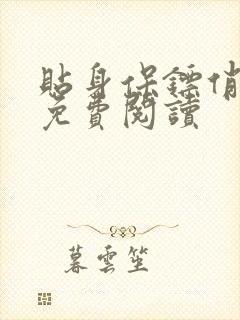 貼身保鏢俏
免費閱讀
暮雲笙